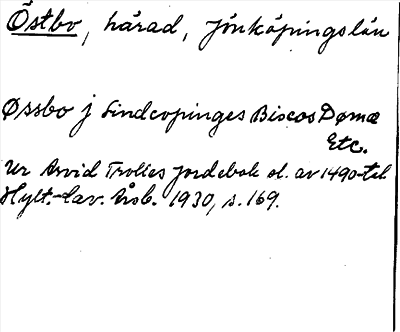 Östbo, härad, Jönköpingslän
Øssbo j Lindcopinges Biscos Dømæ
Etc.
Ur Arvid Trolles Jordebok sl. av 1490-tal.
Hylt.-Cav. Årsb. 1930, s. 169.